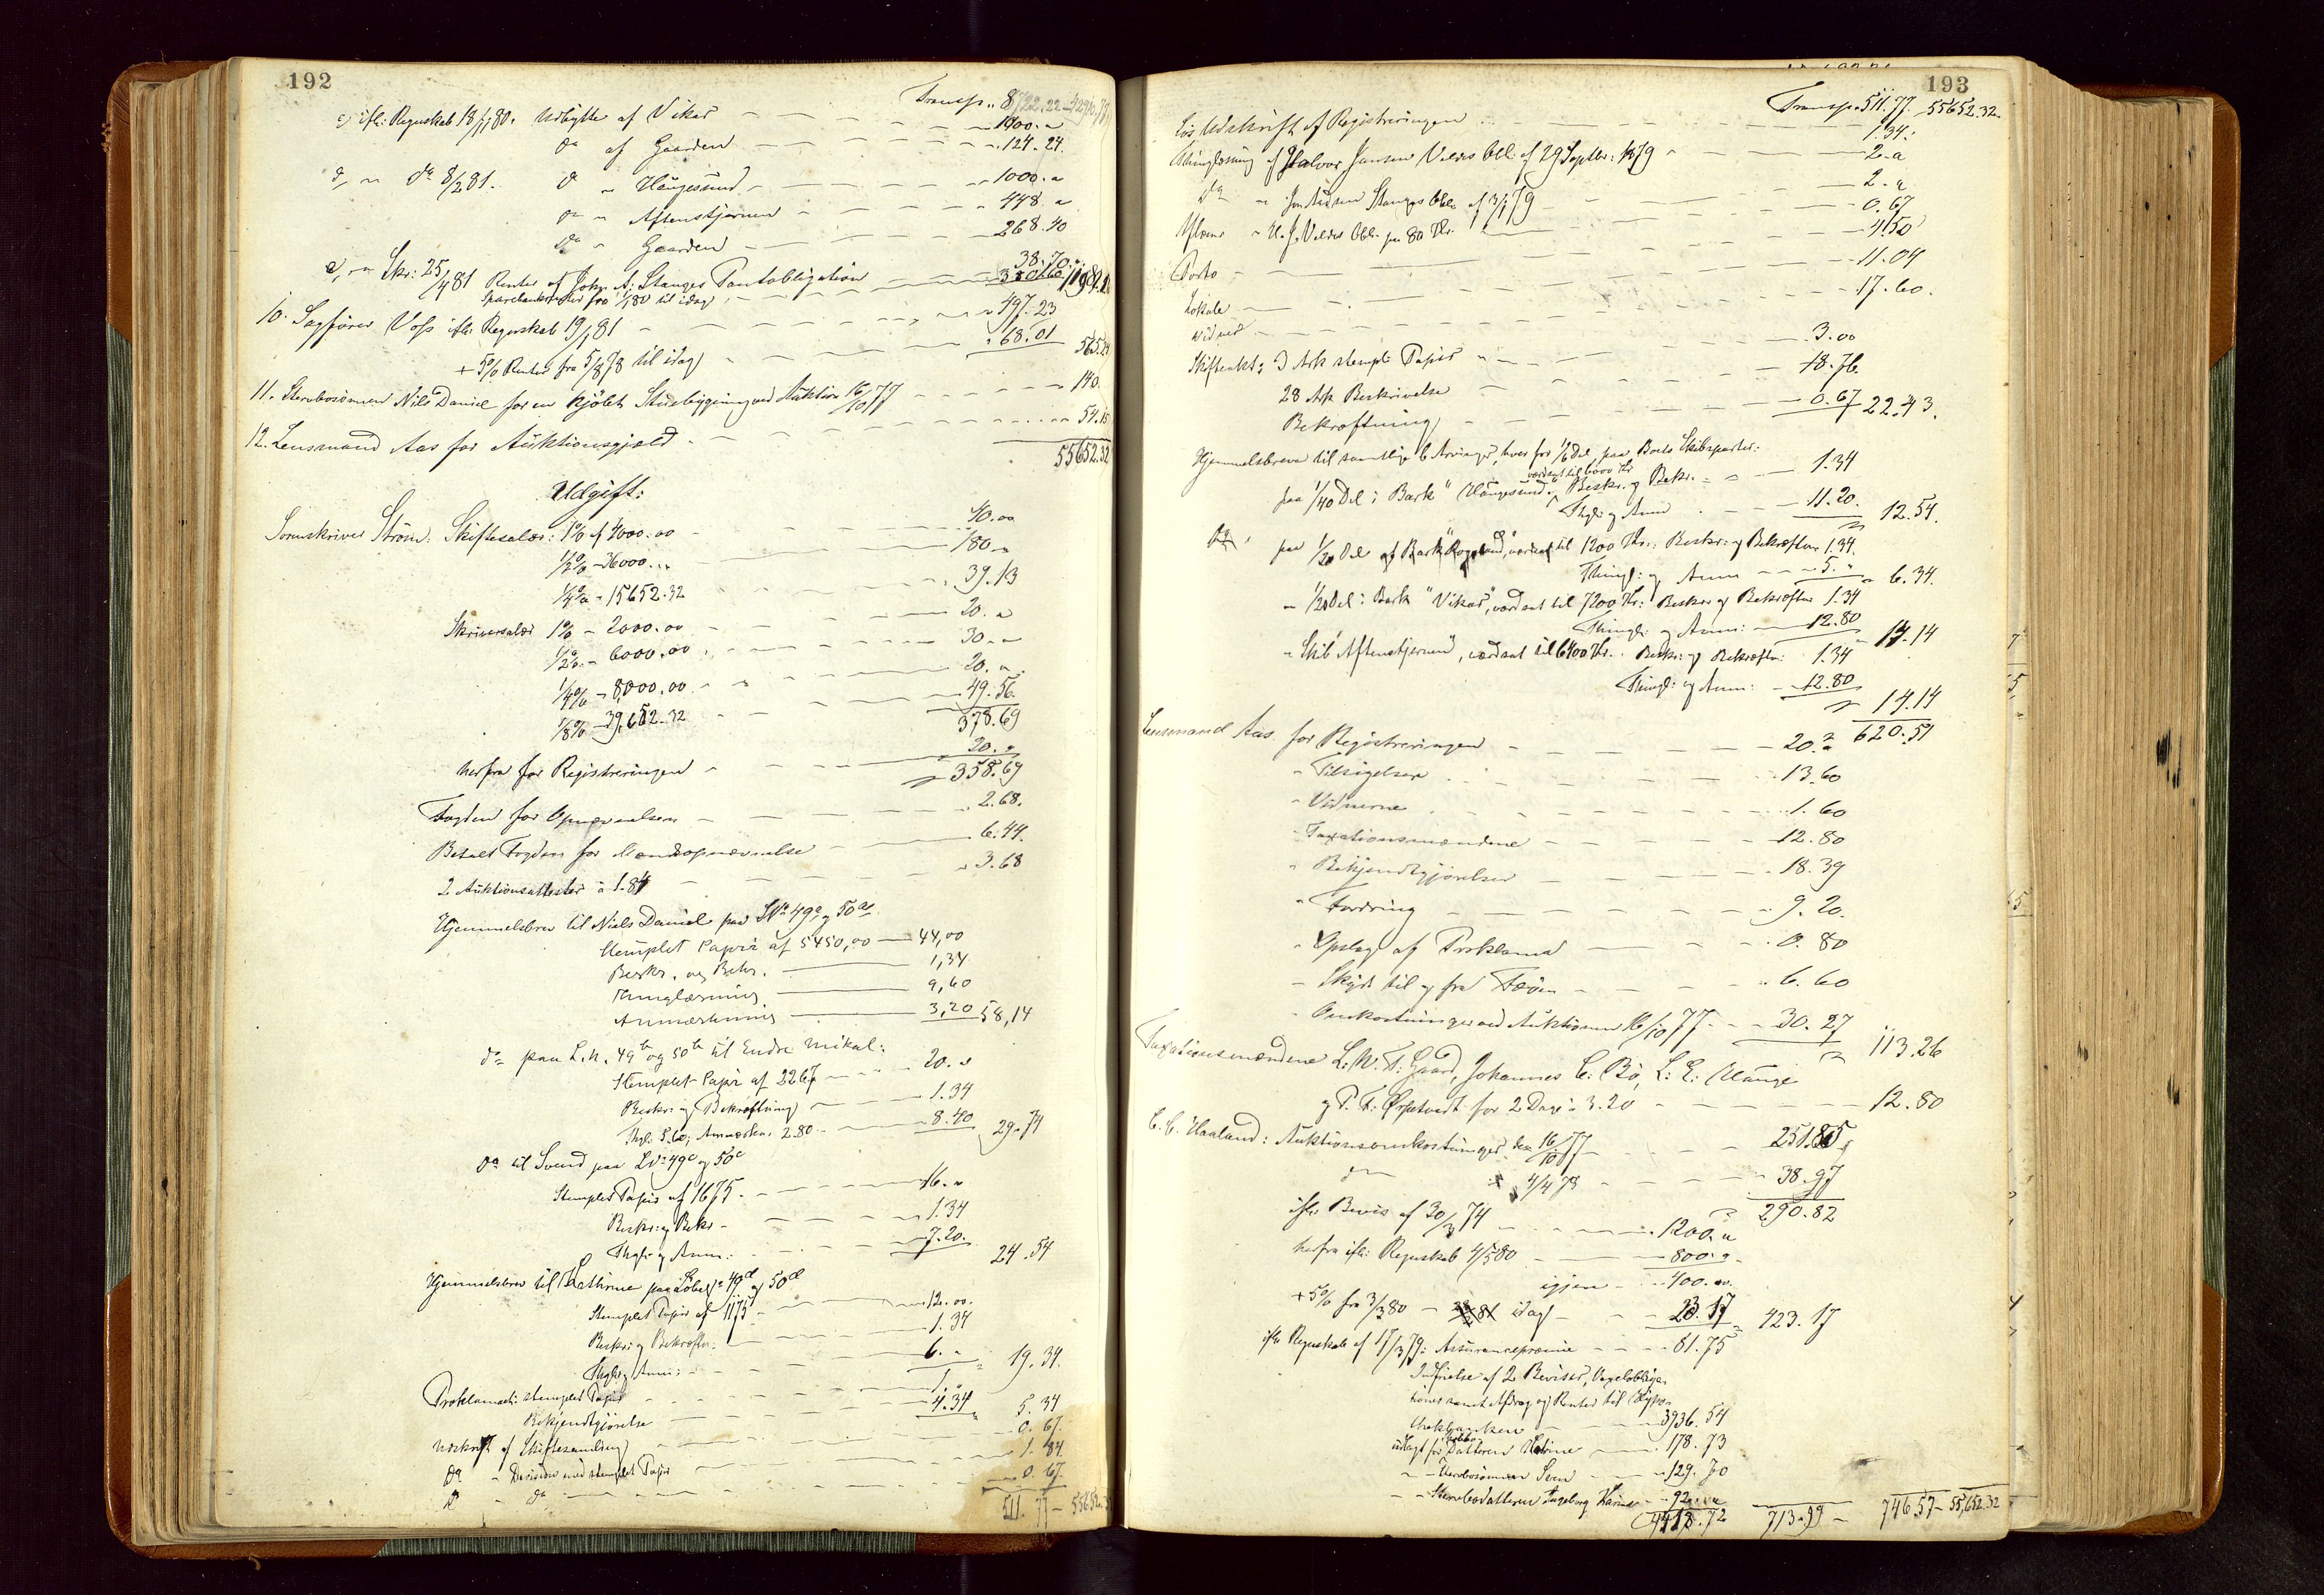 192
Transp. 8722.22
c, ifl: Regnskab 13/1 80. Udbytte af Vikar 1400.„
do af Gaarden 124.24
d, „ do 8/2 81. do „ Haugesund 1000.„
do „ Aftenstjernen 448.„
do „ Gaarden 268.40
38.70
e, „ Skr: 25/4 81 Renter af Johs. A. Stanges Pantobligation
Sparebankrenter fra 1/1 80 til idag
10. Sagfører Voss ifl: Regnskab 19/1 81 497.23
+ 5% Renter fra 5/8 78 til idag 68.01 565.24
11. Stervbosønnen Nils Daniel for en kjøbt Stuebygning ved Auktion 16/10 77 140.
12. Lensmand Aas for Auktionsgjæld 54.15
55652.32
Udgift:
Sorenskriver Strøm: Skiftesalær: 1% af 4000.00 40.00
1/2% - 36000.. 180.„
1/4% - 15652.32 39.13
Skriversalær 1% - 2000.00 20.„
1/2% - 6000.00 30.„
1/4% - 8000.00 20.„
1/8% - 39,652.32 49.56
378.69
herfra for Registreringen 20.„
358.69
Fogden for Opnævnelsen 2.68.
Betalt Fogden for Mændsopnævnelse 6.44.
2 Auktionsattester à 1.84 3.68
Hjemmelsbrev til Niels Daniel paa LNo 49a og 50a
Stemplet Papir af 5450,00 — 44,00
Beskr. og Bekr. 1,34
Thinglæsning 9,60
Anmærkning 3,20 58,14
do paa L.n. 49b og 50b til Endre Mikal:
Stemplet Papir af 2267 20.„
Beskr: og Bekræftning 1.34
Thgl: 5.60, Anmærkn. 2.80 8.40 29.74
do til Svend paa LNo 49c og 50c
Stemplet Papir af 1675. 16.„
Beskr: og Bekr 1.34
Thgl: og Anm: 7.20. 24.54
Hjemmelsbrev til Kathrine paa Løbe No 49d og 50d
Stemplet Papir af 1175 12.00.
Beskr: og Bekræftn: 1.34
Thgl: og Anm: 6.„ 19.34.
Proklamaet: stemplet Papir 1.„
Bekjendtgjørelse 4.34 5.34
Udskrift af Skiftesamling 0.67.
do „ Decision med stemplet Papir 1.84.
do „ do 0.67.
511.77 — 55652.32
193
Transp. 511.77. 55652.32.
for Udskrift af Registreringen 1.34.
Thinglæsning af Halvor Jansen Valdes Obl: af 29 Septbr: 1879 2.„
do „ Jon Stanges Obl: af 13/1 79 2.„
Aflæsn „ H. J. Valdes Obl. paa 80 Kr. 0.67
Porto 4.50
Lokale 11.04
vidner 17.60.
Skifteakt: 3 Ark stempl: Papir 3.00
28 Ark Beskrivelse 18.76
Bekræftning 0.67 22.43.
Hjemmelsbreve til samtlige 6 Arvinger, hver for 1/6 Del, paa Boets Skibsparter:
værdsat til 6000 Kr
paa 1/40 Del i Bark "Haugesund", Beskr. og Bekr. 1.34
Thgl: og Anm 11.20. 12.54.
do, paa 1/20 Del af Bark "Rogaland", værdsat til 1200 Kr.: Beskr: og Bekræftn 1.34.
Thingl: og Anm 5.„ 6.34.
„ 1/20 Del i Bark "Vikar", værdsat til 7200 Kr: Beskr: og Bekræftn 1.34
Thingl: og Anm: 12.80 14.14
„ Skib "Aftenstjernen", værdsat til 6400 Kr. Beskr: og Bekræftn: 1.34
Thingl: og Anm: 12.80 14.14
620.54
Lensmand Aas for Registreringen 20.„
„ Tilsigelser 13.60
„ Vidnerne 1.60
„ Taxationsmændene 12.80
„ Bekjendtgjørelser 18.39
„ Fordring 9.20.
„ Opslag af Proklama 0.80
„ Skyds til og fra Fæøen 6.60
„ Omkostninger ved Auktionen 16/10 77 30.27 113.26
Taxationsmændene L. W. F. Gaard, Johannes C. Bø, L: E: Hauge
og P. F. Ørpetvedt for 2 Dage à 3.20 12.80
C. C. Haaland: Auktionsomkostninger den 16/10 77 251.85
do 4/4 78 38.97
290.82
ifl: Bevis af 30/3 74 1200.„
herfra ifl: Regnskab 4/3 80 800.„
igjen 400.00.
+ 5% fra 3/3 80 — idag 23.17 423.17
ifl: Regnskab af 17/3 79: Assurancepræmie 61.75
Indfrielse af 2 Beviser, Vexelobliga-
tioner samt Afdrag og Renter til Hypo-
thekbanken 3936.54
udlagt for Datteren Katrine 178.73
„ Stervbosønnen Sven 129.70
„ Stervbodatteren Ingeborg Karine 92.„
713.99 — 746.57 — 55,652.32